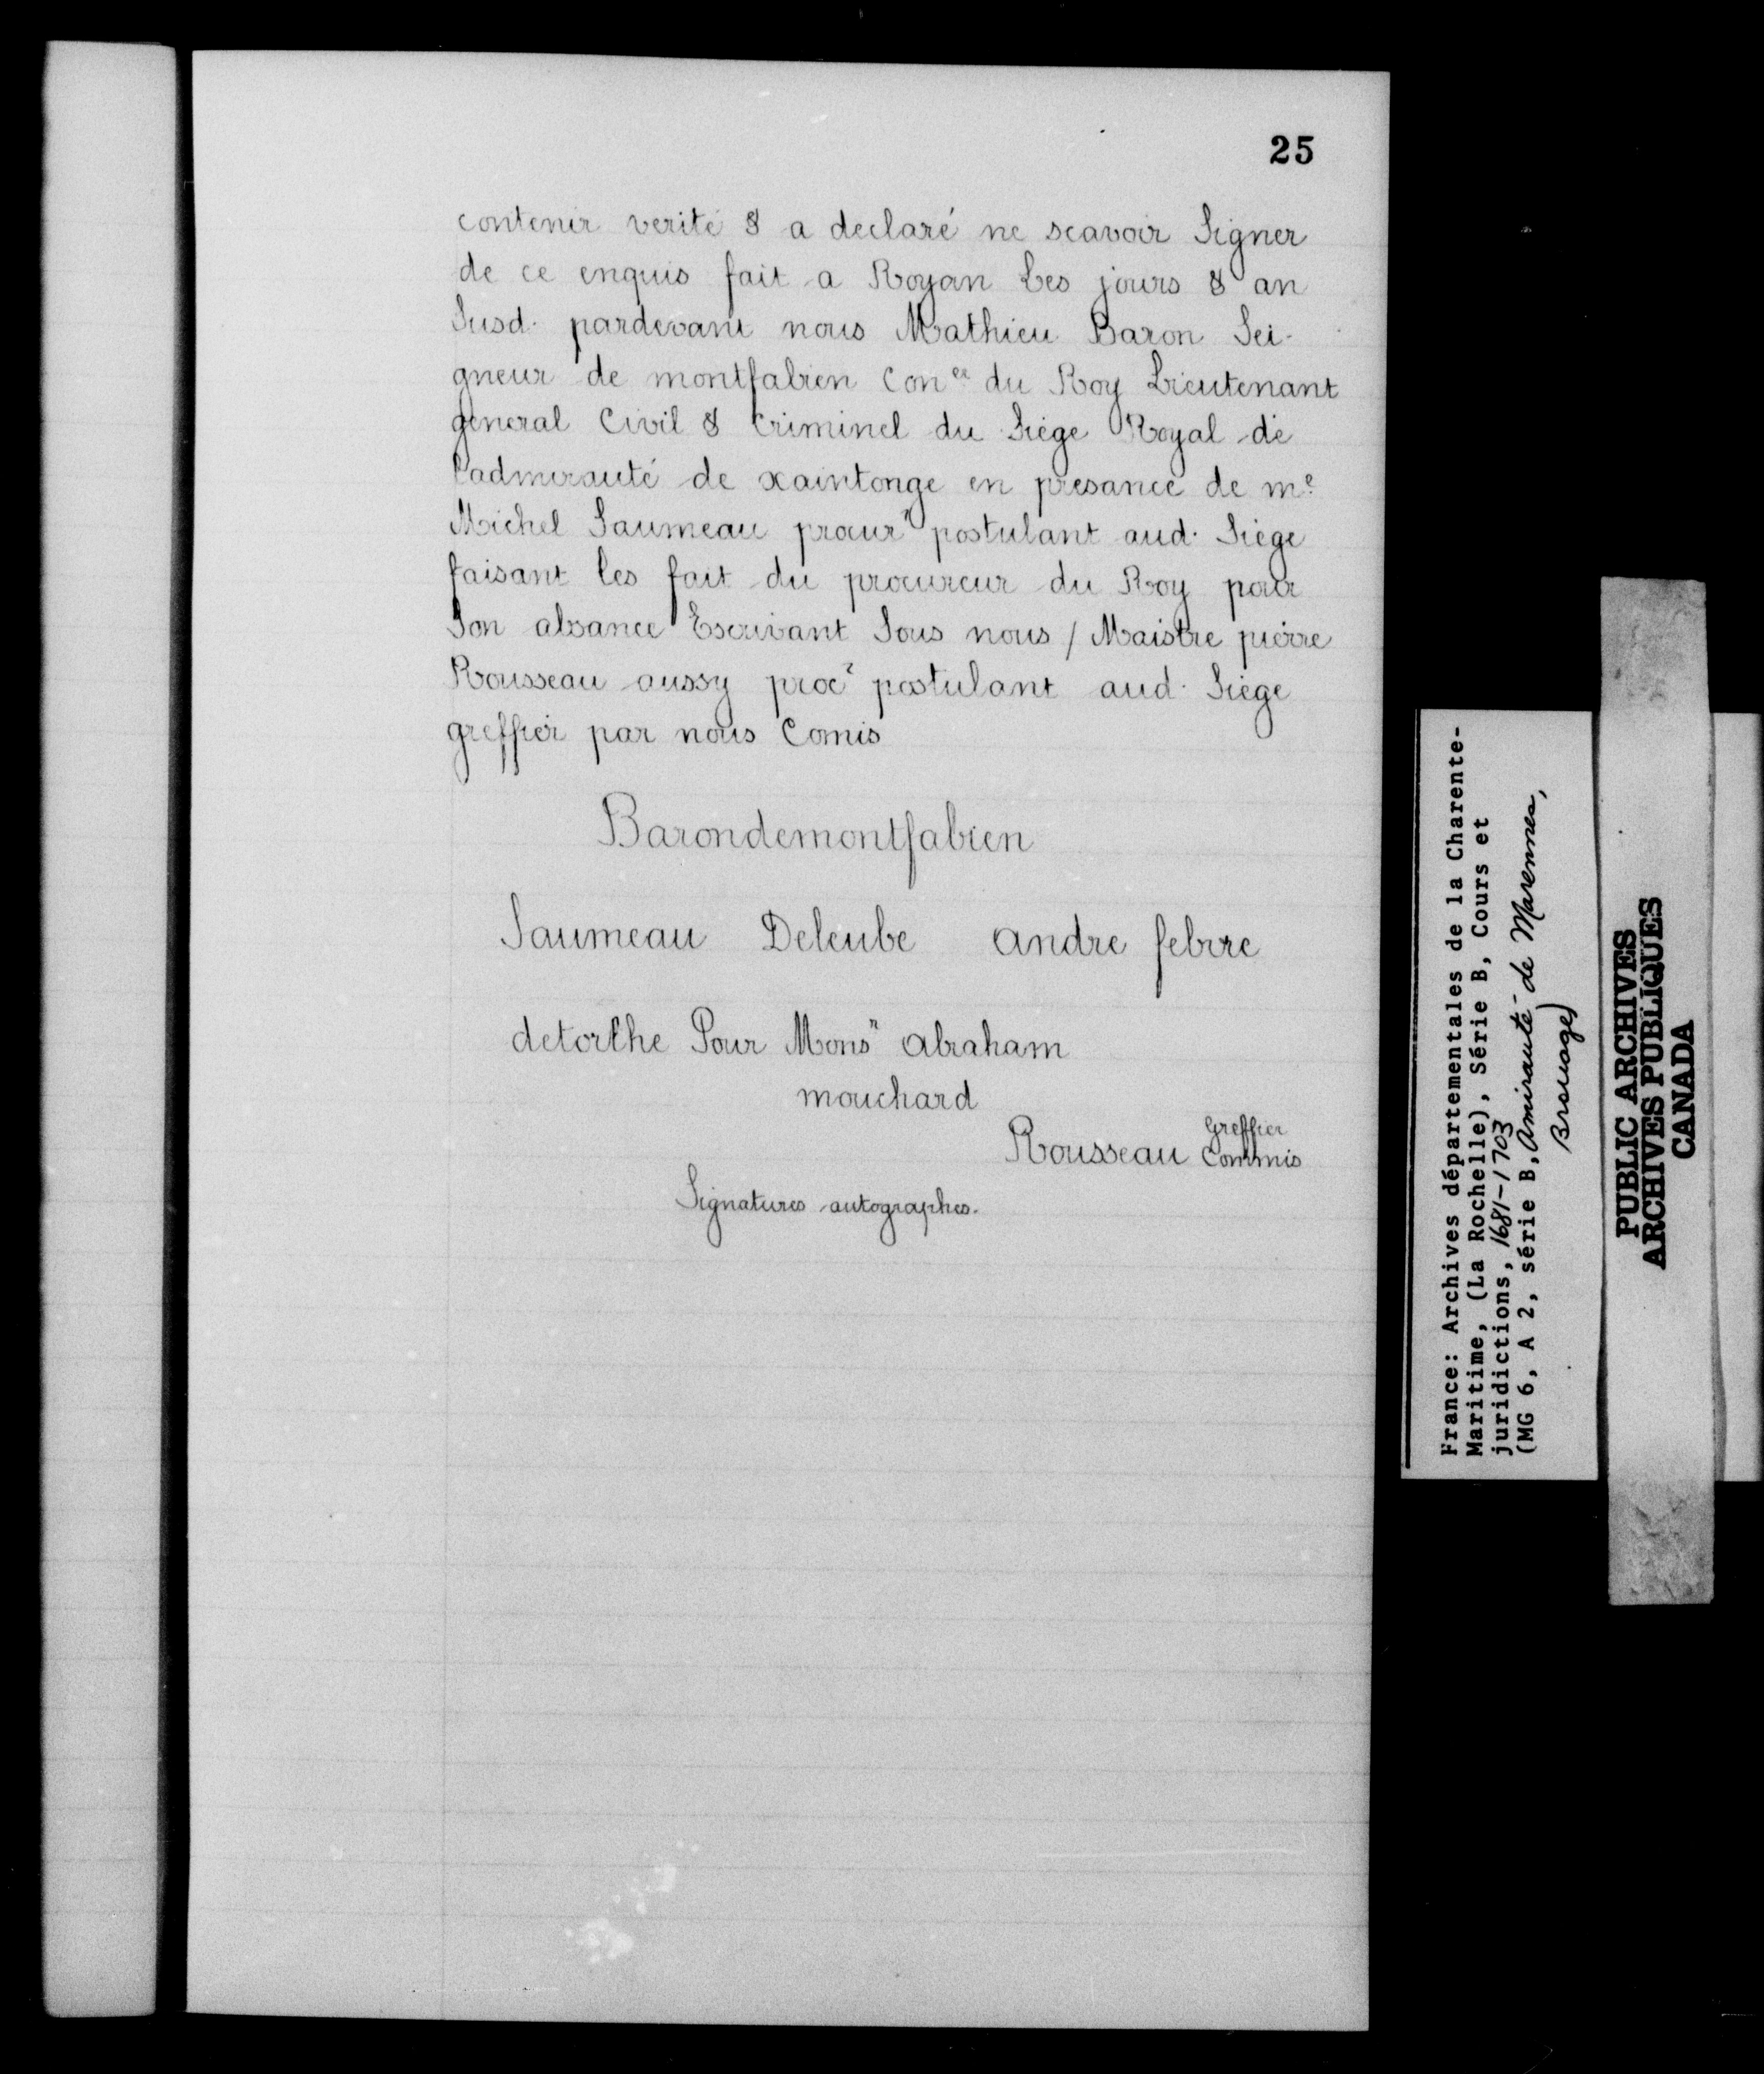 25
contenir verité & a declaré ne scavoir Signer
de ce enquis fait a Royan Les jours & an
Susd. pardevant nous Mathieu Baron Sei-
gneur de montfabien Con.er du Roy Lieutenant
general Civil & Criminel du Siége Royal de
l'admirauté de xaintonge en presance de m.e
Michel Saumeau procur.r postulant aud. Siége
faisant les fait du procureur du Roy pour
Son absance Escrivant Sous nous / Maistre pierre
Rousseau aussy proc.r postulant aud. Siége
greffier par nous Comis
Barondemontfabien
Saumeau Deleube andre febvre
detorthe Pour Mons.r abraham
mouchard
Rousseau Greffier
Commis
Signatures autographes.
France: Archives départementales de la Charente-
Maritime, (La Rochelle), Série B, Cours et
juridictions, 1681-1703
(MG 6, A 2, série B, Amirauté de Marennes,
Brouage)
PUBLIC ARCHIVES
ARCHIVES PUBLIQUES
CANADA